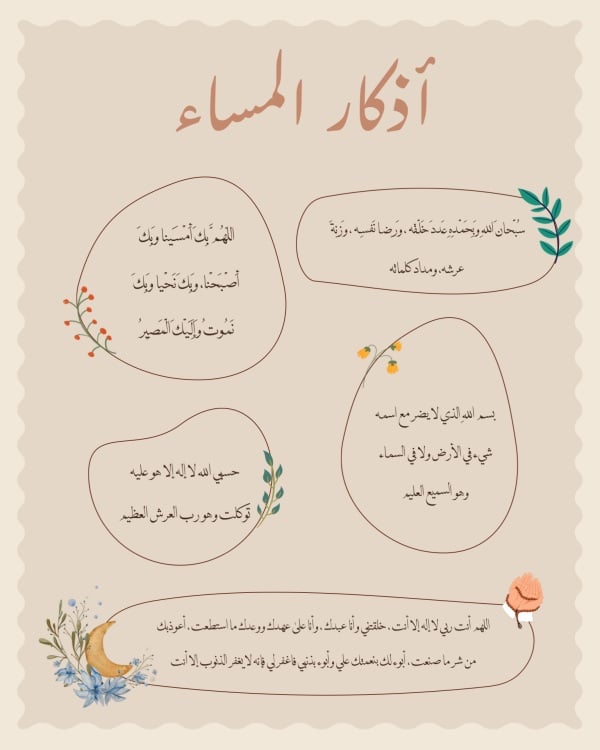 أذكار المساء
سُبْحان اللهِ وَبِحَمْدِهِ عَددَ خَلْقْه ، وَرضا نَفسِه ، وَزِنةَ
عرشه، ومداد كلماته
اللهُم َّ بِكَ أَمْسَيْنا وَبِكَ
أصْبَحْنا، وَبِكَ نَحْيا وَبِكَ
نَمُوتُ وَإلَيْكَ الْمَصيرُ
بسم الله الذي لا يضر مع اسمه
شيء في الأرض ولا في السماء
وهو السميع العليم
حسبي الله لا إله إلا هو عليه
توكلت وهو رب العرش العظيم
اللهم أنت ربي لا إله إلا أنت ، خلقتني وأنا عبدك ، وأنا على عهدك ووعدك ما استطعت ، أعوذ بك
من شر ما صنعت ، أبوء لك بنعمتك علي وأبوء بذنبي فاغفر لي فإنه لا يغفر الذنوب إلا أنت